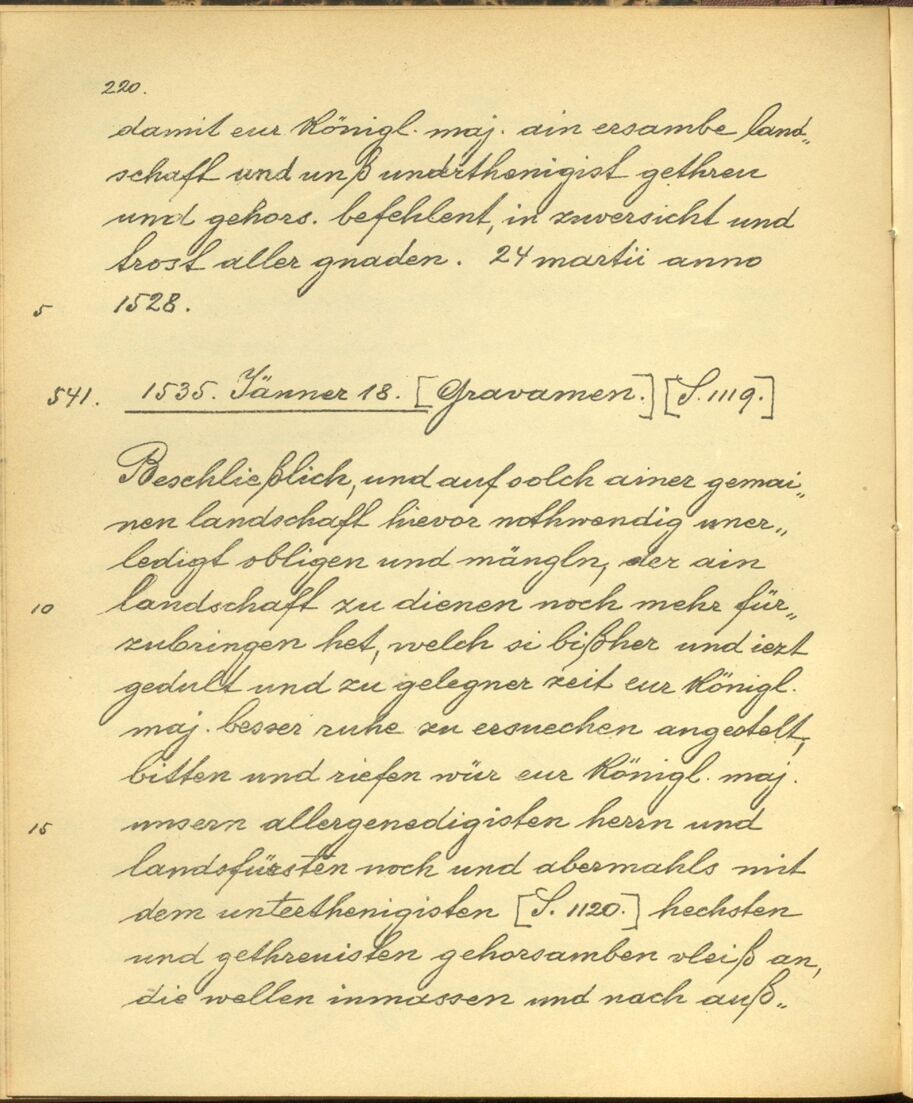 220.
damit eur Königl. maj. ain ersambe land„
schaft und unß underthenigist gethreu
und gehors. befehlent, in zuversicht und
trost aller gnaden. 24 martii anno
5 1528.
541. 1535. Jänner 18. [Gravamen.] [S. 1119.]
Beschließlich, und auf solch ainer gemai„
nen landschaft hievor nothwendig uner„
ledigt obligen und mängln, der ain
10 landschaft zu dienen noch mehr für„
zubringen het, welch si bißher und iezt
gedult und zu gelegner zeit eur Königl.
maj. besser ruhe zu ersuechen angestelt,
bitten und riefen wür eur Königl. maj.
15 unsern allergenedigisten herrn und
landsfürsten noch und abermahls mit
dem unterthenigisten [S. 1120.] hechsten
und gethreuisten gehorsamben vleiß an,
die wellen inmassen und nach auß„